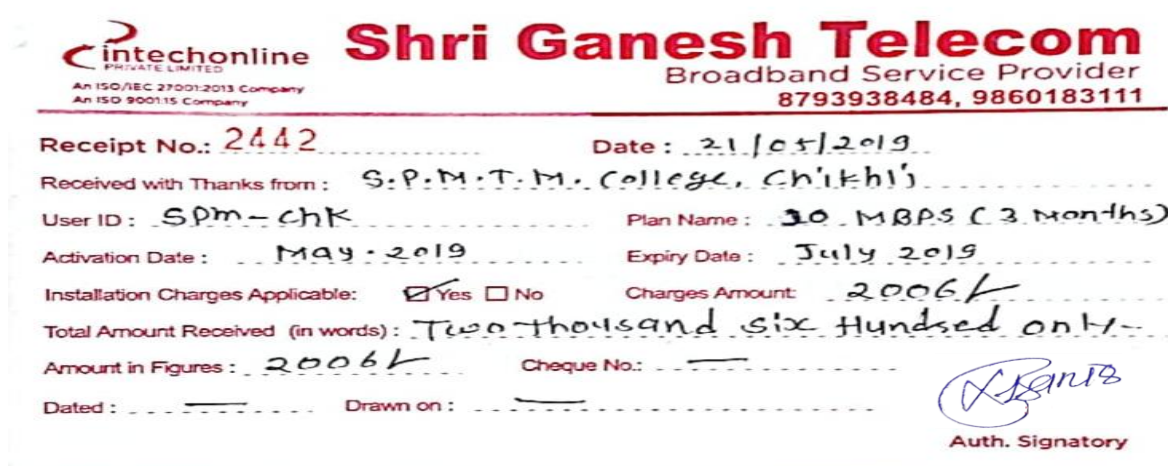 intechonline
PRIVATE LIMITED
An ISO/IEC 27001:2013 Company
An ISO 9001:15 Company
Shri Ganesh Telecom
Broadband Service Provider
8793938484, 9860183111
Receipt No.: 2442 Date : 21/05/2019
Received with Thanks from : S.P.M.T.M. College, Chikhli
User ID : SPM-chk Plan Name : 10 MBPS (3 Months)
Activation Date : May-2019 Expiry Date : July 2019
Installation Charges Applicable: Yes No Charges Amount: 2006/-
Total Amount Received (in words) : Two thousand six Hundred only-
Amount in Figures : 2006/- Cheque No.: —
Dated : — Drawn on : —
Auth. Signatory